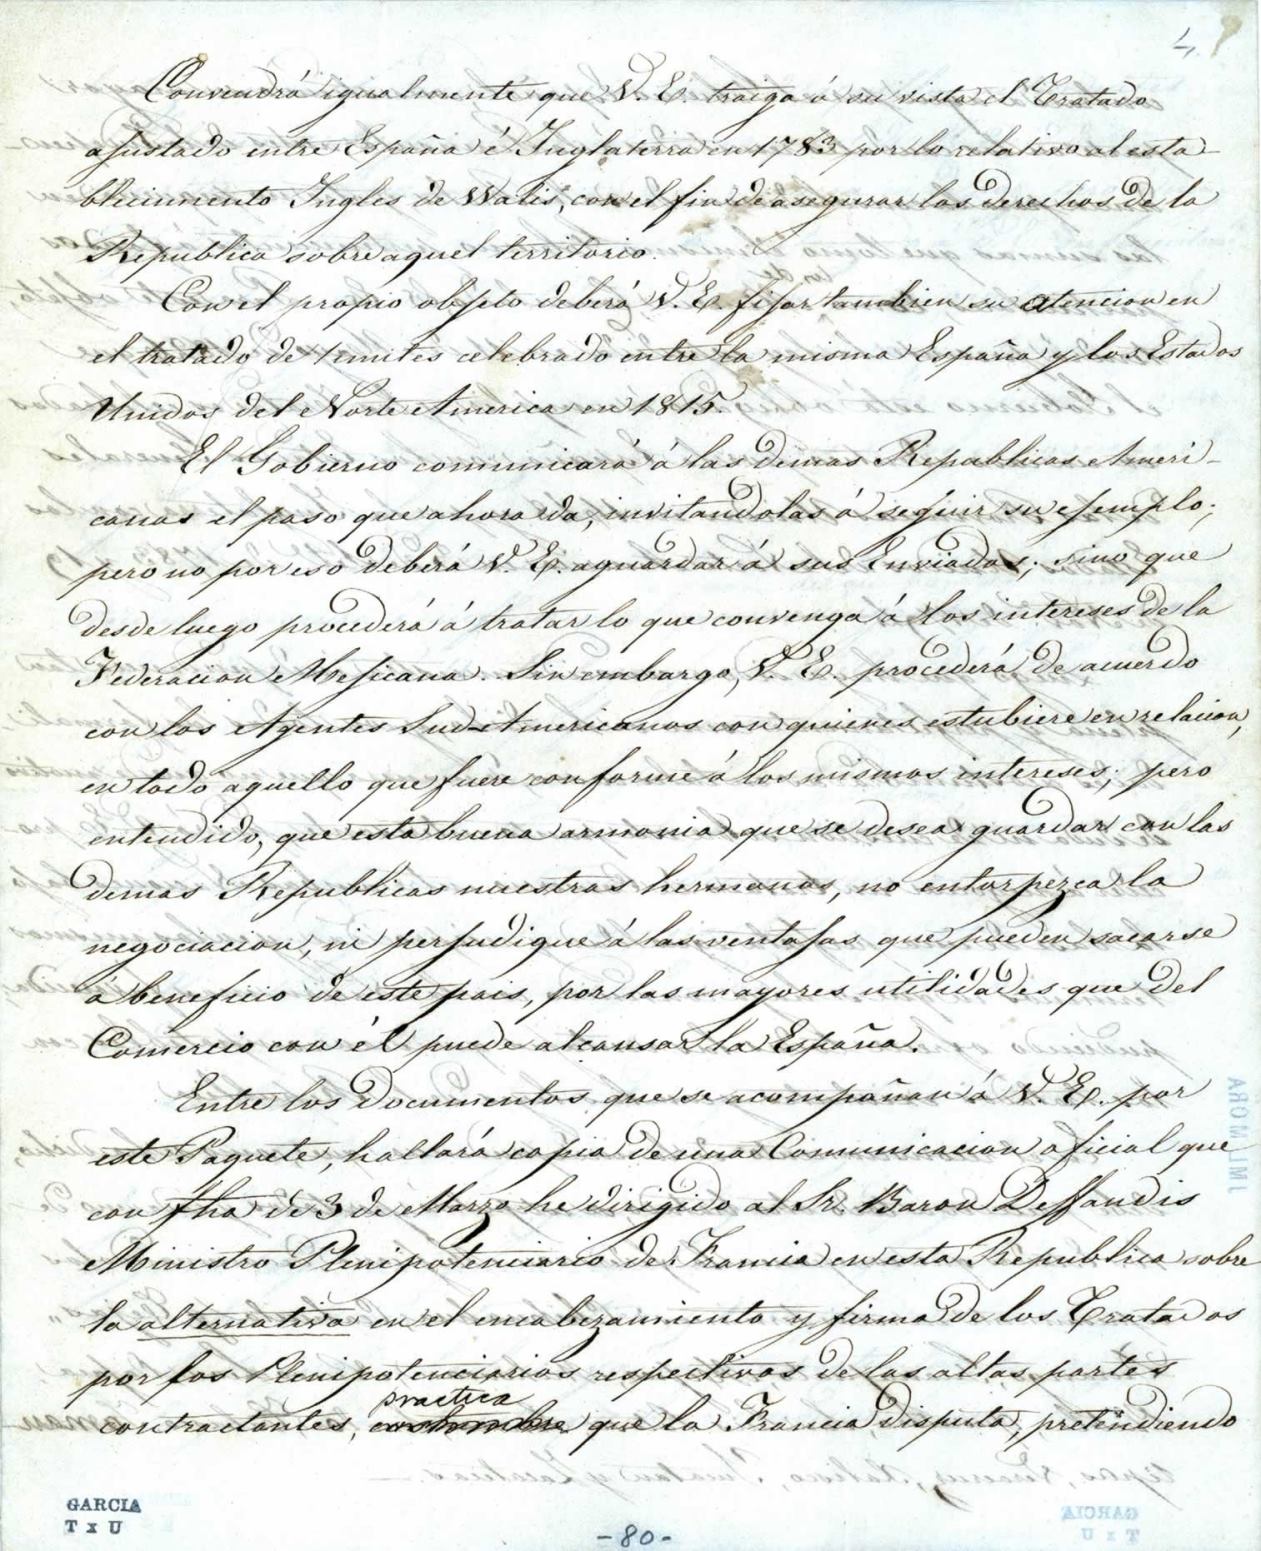 4.
Convendrá igualmente que V. E. traiga á su vista el Tratado
ajustado entre España é Inglaterra en 1783 por lo relativo al esta-
blecimiento Ingles de Walis, con el fin de asegurar los derechos de la
Republica sobre aquel territorio.
Con el propio objeto deberá V. E. fijar tambien su atencion en
el tratado de limites celebrado entre la misma España y los Estados
Unidos del Norte America en 1815.
El Gobierno comunicará á las demas Republicas Ameri-
canas el paso que ahora da, invitandolas á seguir su ejemplo;
pero no por eso deberá V. E. aguardar á sus Enviados; sino que
desde luego procederá á tratar lo que convenga á los intereses de la
Federacion Mejicana. Sin embargo, V. E. procederá de acuerdo
con los Agentes Sud-Americanos con quienes estubiere en relacion,
en todo aquello que fuere conforme á los mismos intereses; pero
entendido, que esta buena armonia que se desea guardar con las
demas Republicas nuestras hermanas, no entorpezca la
negociacion, ni perjudique á las ventajas que pueden sacarse
á beneficio de este pais, por las mayores utilidades que del
Comercio con él puede alcansar la España.
Entre los Documentos que se acompañan á V. E. por
este Paquete, hallará copia de una Comunicacion oficial que
con fha de 3 de Marzo he dirigido al Sr. Baron Deffaudis
Ministro Plenipotenciario de Francia en esta Republica sobre
la alternativa en el encabezamiento y firma de los Tratados
por los Plenipotenciarios respectivos de las altas partes
practica
contractantes, costumbre que la Francia disputa, pretendiendo
GARCIA
T x U
-80-